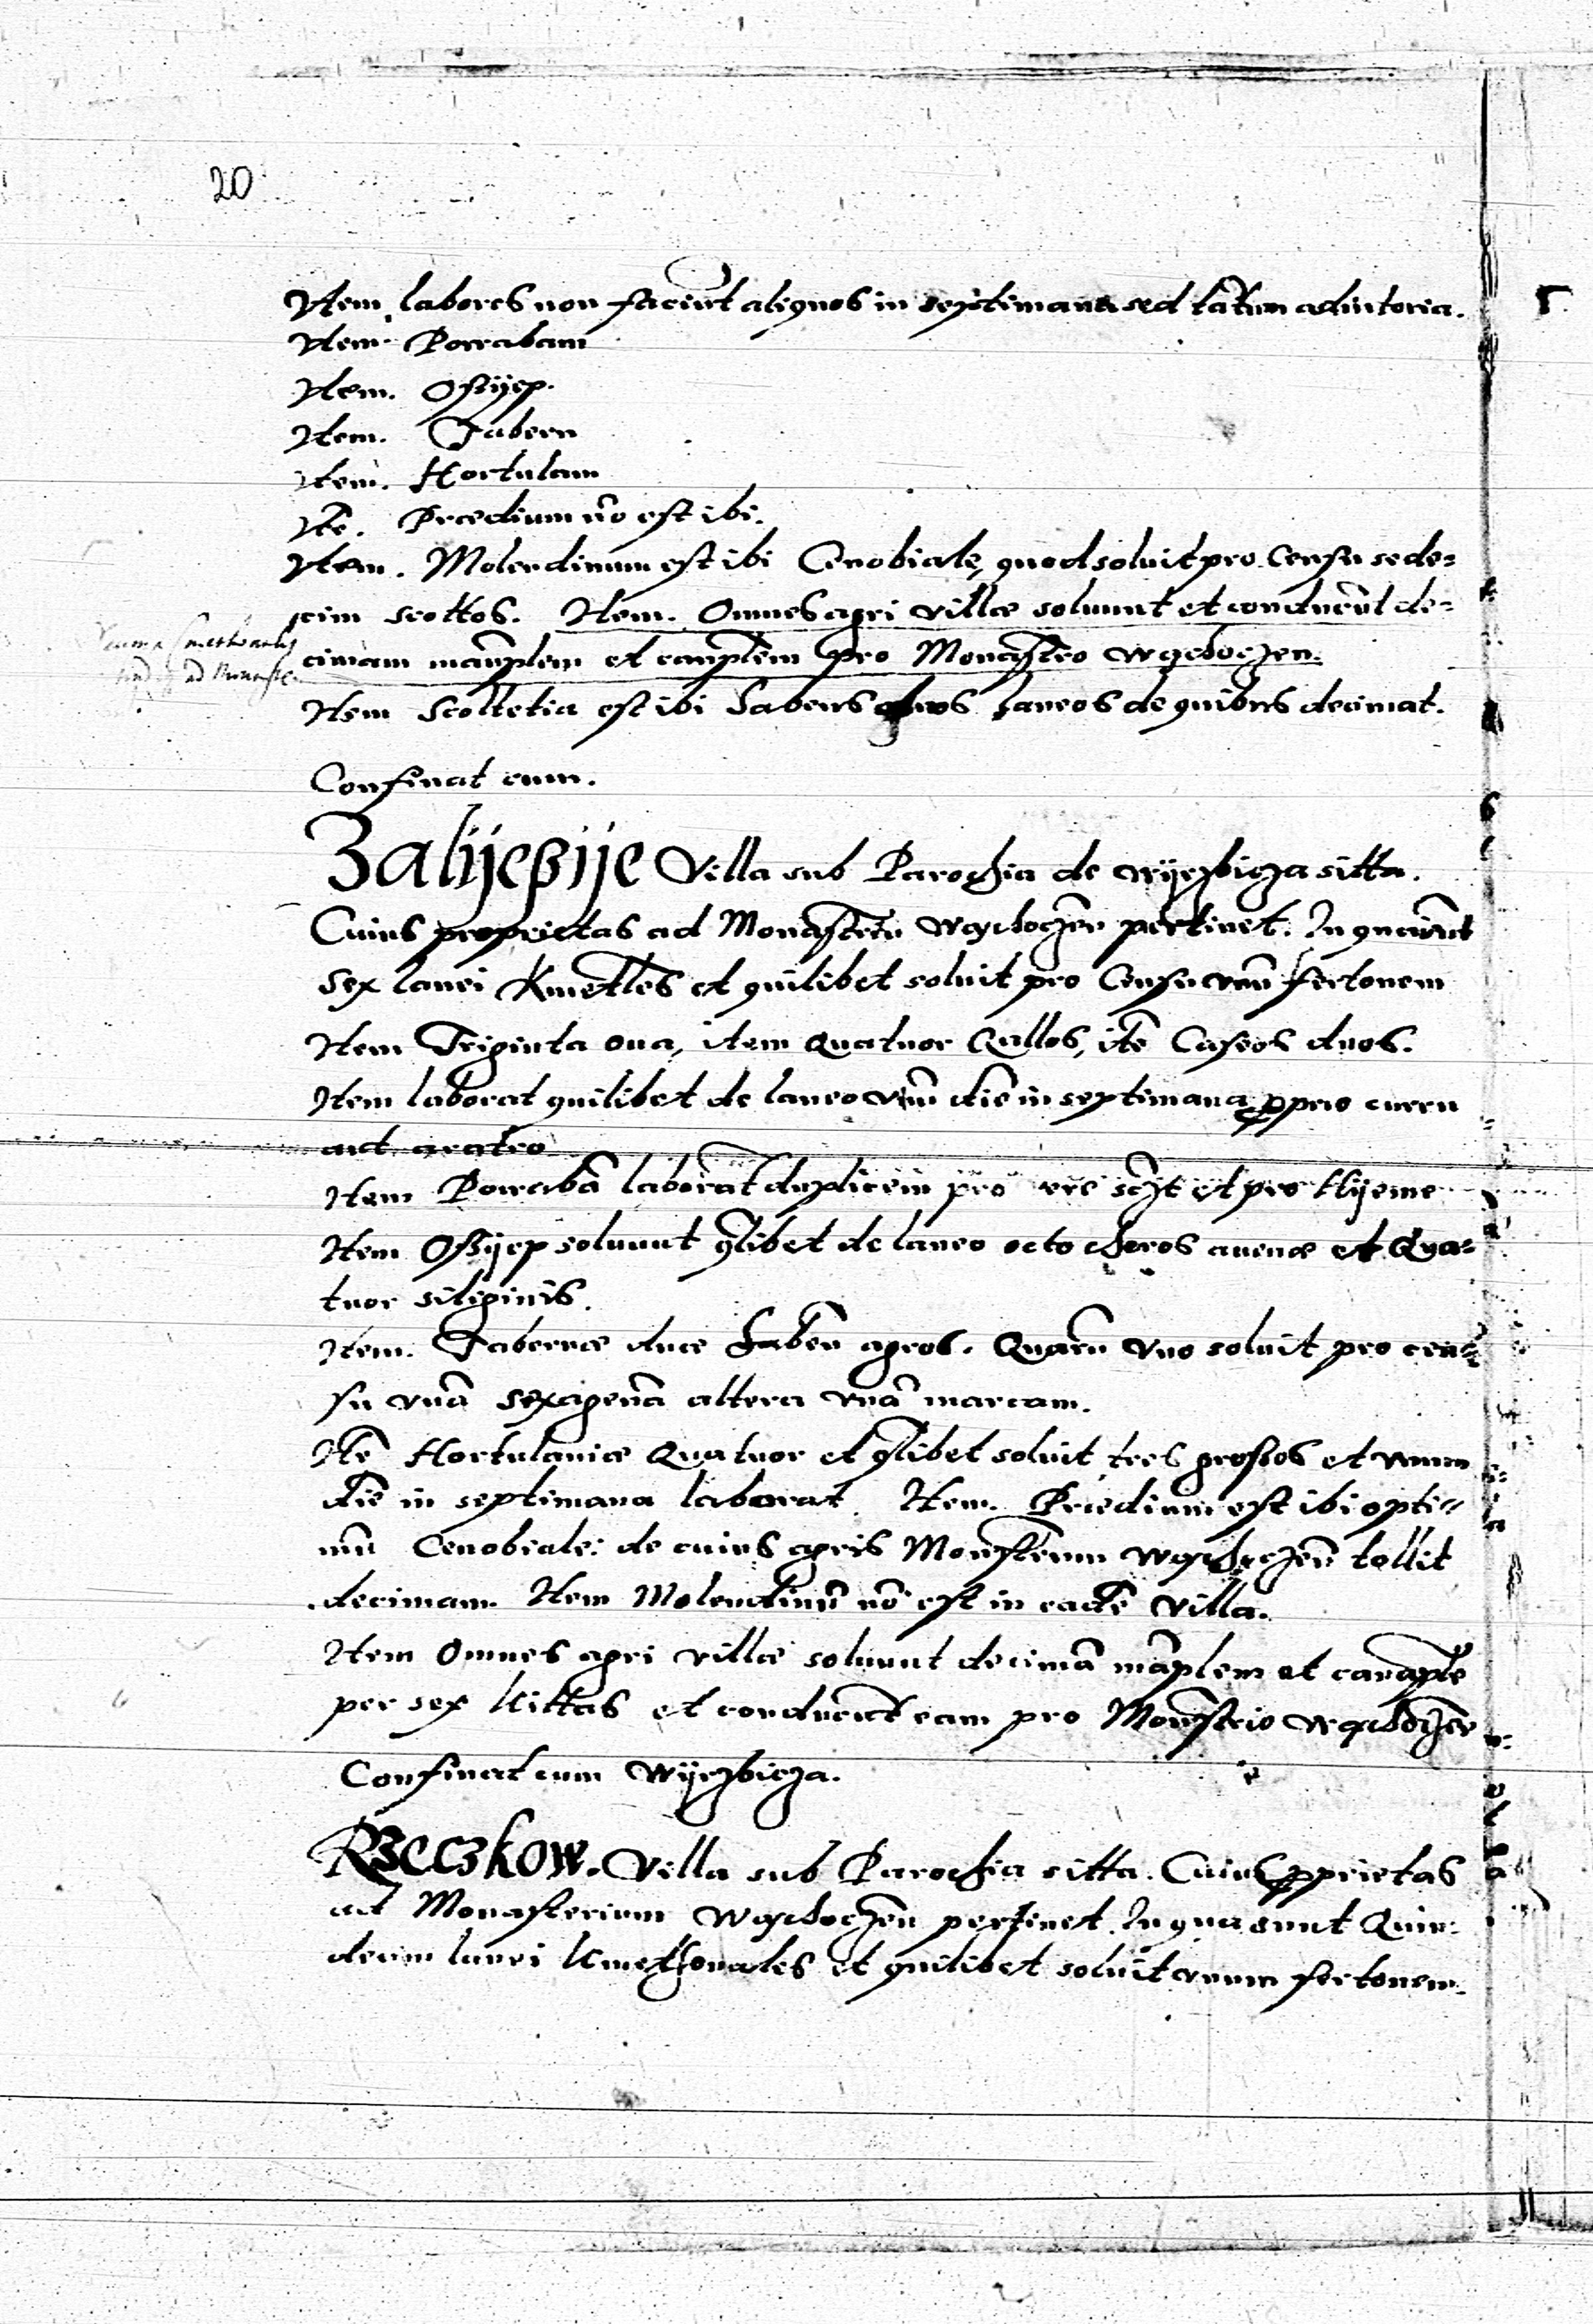 20
Item labores non faciūt aliquos in septimana sed tātum adiutoria.
Item. Porrabam
Item. Osÿep.
Item. Tabern
Item. Hortulam
Itē. Prædium nō est ibi.
Item. Molendinum est ibi Cenobiale, quod soluit pro Censu sede-
cim scottos. Item. Omnes agri villæ soluunt et conducūt de-
cimam manīplem et canaplem pro Monastēo Wąchoczen.
Item Scoltetia est ibi habens duos laneos de quibus decimat.
Confinat cum.
Zalÿeßÿe Villa sub Parochia de Wÿerzbicza sitta.
Cuius proprietas ad Monasteriū Wąchoczēn pertinet. In qua sunt
sex lanei Kmetles et quilibet soluit pro Censu vnū fertonem
Item Triginta oua, item Quatuor Gallos, itē Caseos duos.
Item laborat quilibet de laneo vnū diē in septimana pprio curru
aut aratro
Item Porrabā laborāt duplicem pro et pro Hÿeme
Item Oßÿep soluunt qlibet de laneo octo choros auenæ et Qua-
tuor siliginis.
Item. Tabernæ duæ habēn agros. Quarū vno soluit pro cen-
su vnā sexagenā altera vnā marcam.
Itē Hortulaniæ Quatuor et qlibet soluit tres grossos et vnum
diē in septimana laborat. Item. Prædium est ibi opti-
mū Cenobiale: de cuius agris Monasterium Wąchoczēn tollit
decimam. Item Molendinū nō est in eadē Villa.
Item Omnes agri villæ soluunt decimā māplem et canaplē
per sex kittas et conducūt eam pro Monasterio Wąchoczēn
Confinat cum Wÿerzbicza.
Rzeczkow. Villa sub Parochia sitta. Cuius pprietas
ad Monasterium Wąchoczēn pertinet. In qua sunt Quin-
decim lanei Kmethonales et quilibet soluit vnum fertonem.